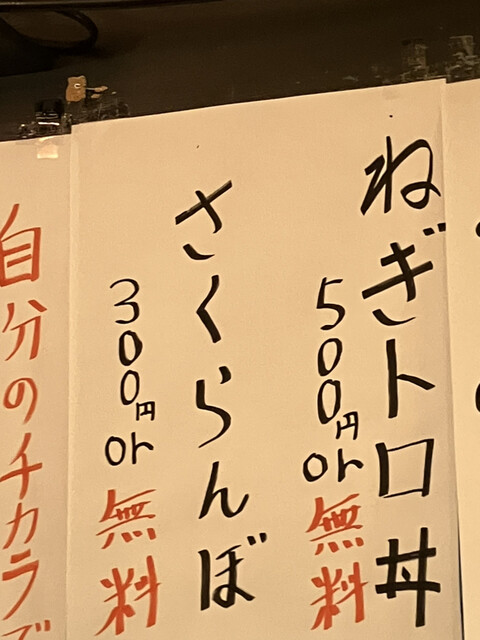 ねぎトロ丼
500円or無料
さくらんぼ
300円or無料
自分のチカラで